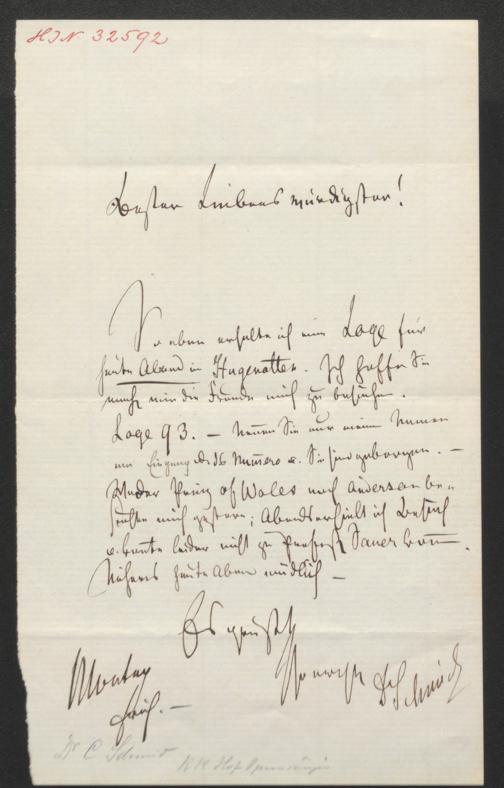 HIN 32592
Bester Liebenswürdigster!
So eben erhalte ich eine Loge für
heute Abend in Hugenotten. Ich hoffe Sie
machen mir die Freude mich zu besuchen.
Loge 93. – Nennen Sie nur meinen Namen
am Eingang des Numero u. Sie sind geborgen. –
Weder Prinz of Wales noch Anderson be-
suchten mich gestern; Abends erhielt ich Besuch
u. konnte leider nicht zu Professor
Näheres heute Abend mündlich –
Es grüsst
Montag
früh. –
Ihr Dr Schmid
Dr C. Schmid
KK Hof Opernsänger